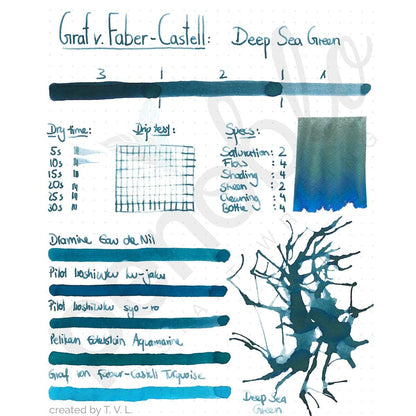 Graf v. Faber-Castell: Deep Sea Green
3 1 2 1 1
Dry time: Drip test: Specs:
5s
10s
15s
20s
25s
30s
Saturation: 2
Flow : 4
Shading : 4
Sheen : 2
Cleaning : 4
Bottle : 4
Diamine Eau de Nil
Pilot Iroshizuku ku-jaku
Pilot Iroshizuku syo-ro
Pelikan Edelstein Aquamarine
Graf von Faber-Castell Turquoise
Deep Sea
Green
created by T. V. L.